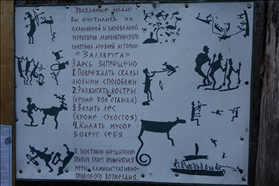 Уважаемые люди!
Вы очутились на
охраняемой и заповедной
территории археологического
памятника древней истории
"Залавруга"
Здесь запрещено
1. Повреждать скалы
любыми способами
2. Разжигать костры
(кроме зон отдыха)
3. Валить лес
(кроме сухостоя)
4. Кидать мусор
вокруг себя
К злостным нарушителям
правил будут применяться
меры административно-
правового возмездия.